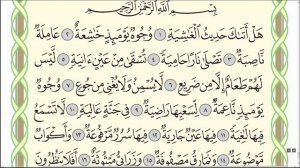 بِسْمِ اللَّهِ الرَّحْمَٰنِ الرَّحِيمِ
هَلْ أَتَىٰكَ حَدِيثُ الْغَاشِيَةِ ١ وُجُوهٌ يَوْمَئِذٍ خَاشِعَةٌ ٢ عَامِلَةٌ
نَاصِبَةٌ ٣ تَصْلَىٰ نَارًا حَامِيَةً ٤ تُسْقَىٰ مِنْ عَيْنٍ ءَانِيَةٍ ٥ لَّيْسَ
لَهُمْ طَعَامٌ إِلَّا مِن ضَرِيعٍ ٦ لَّا يُسْمِنُ وَلَا يُغْنِي مِن جُوعٍ ٧ وُجُوهٌ
يَوْمَئِذٍ نَّاعِمَةٌ ٨ لِّسَعْيِهَا رَاضِيَةٌ ٩ فِي جَنَّةٍ عَالِيَةٍ ١٠ لَّا تَسْمَعُ
فِيهَا لَاغِيَةً ١١ فِيهَا عَيْنٌ جَارِيَةٌ ١٢ فِيهَا سُرُرٌ مَّرْفُوعَةٌ ١٣ وَأَكْوَابٌ
مَّوْضُوعَةٌ ١٤ وَنَمَارِقُ مَصْفُوفَةٌ ١٥ وَزَرَابِيُّ مَبْثُوثَةٌ ١٦ أَفَلَا يَنظُرُونَ